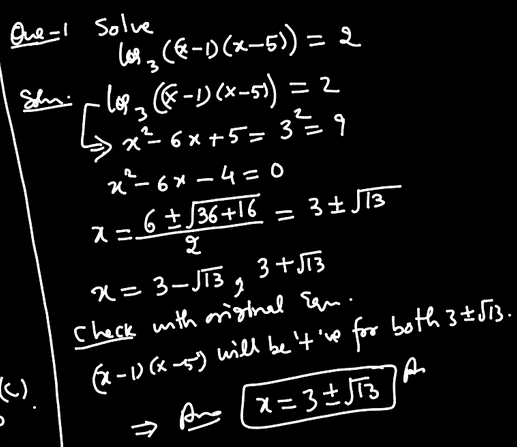 Que-1 Solve
log₃((x-1)(x-5)) = 2
Soln: log₃((x-1)(x-5)) = 2
⇒ x² - 6x + 5 = 3² = 9
x² - 6x - 4 = 0
x = (6 ± √(36+16))/2 = 3 ± √13
x = 3-√13, 3+√13
Check with original Eqn.
(x-1)(x-5) will be '+'ve for both 3±√13.
(C).
⇒ Ans x = 3±√13